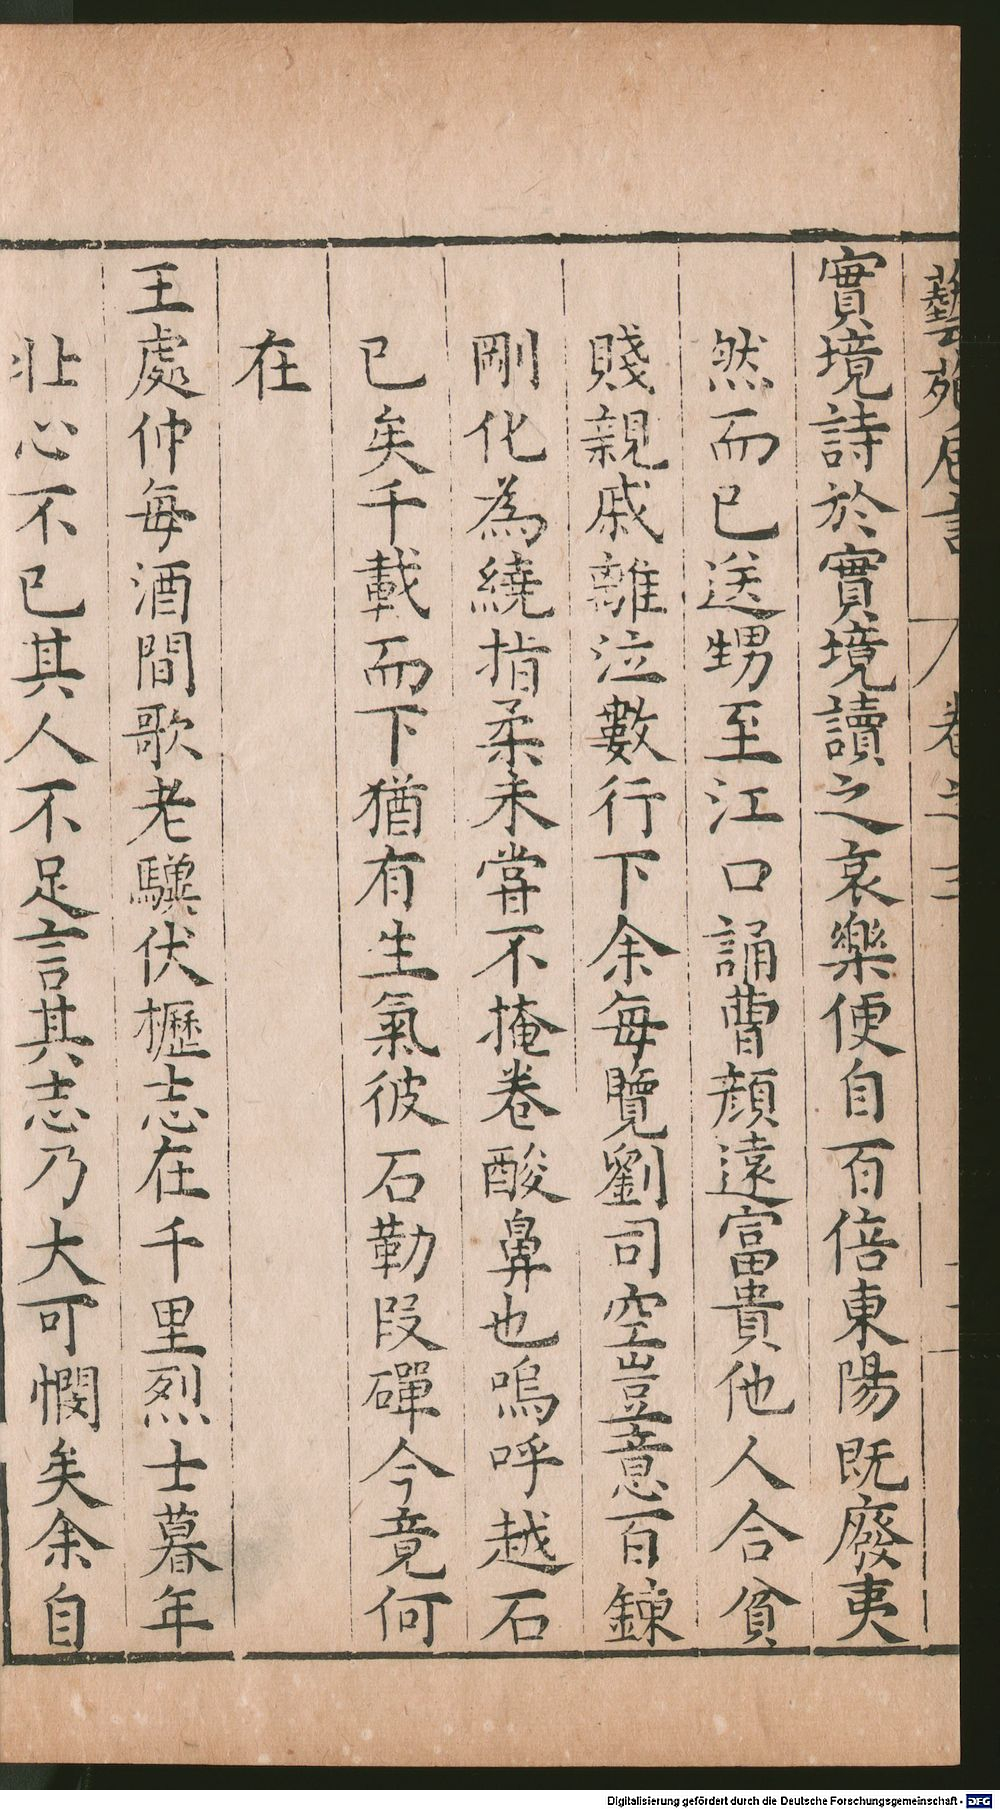 藝苑卮言 卷之三
實境詩於實境讀之哀樂便自百倍東陽既廢夷
然而已送甥至江口誦曹顏遠富貴他人合貧
賤親戚離泣數行下余每覽劉司空豈意百鍊
剛化為繞指柔未嘗不掩卷酸鼻也嗚呼越石
已矣千載而下猶有生氣彼石勒段磾今竟何
在
王處仲每酒間歌老驥伏櫪志在千里烈士暮年
壯心不已其人不足言其志乃大可憫矣余自
Digitalisierung gefördert durch die Deutsche Forschungsgemeinschaft - DFG